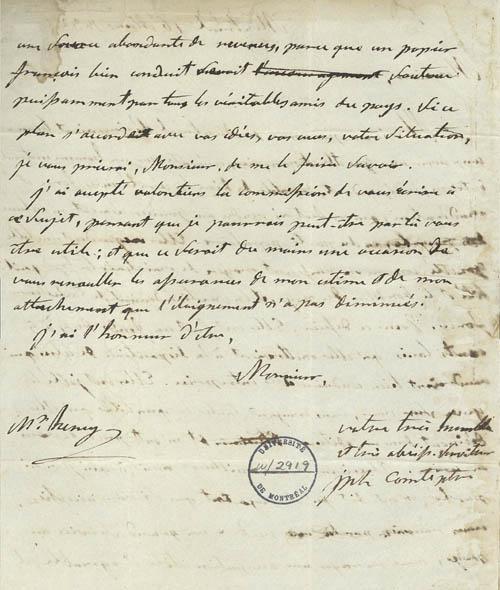 une source abondante de revenus, parce que un papier
françois bien conduit seroit l'encouragement soutenu
puissamment par tous les véritables amis du pays. Si ce
plan s'accordoit avec vos idées, vos vues, votre situation,
je vous prierai, Monsieur, de me le faire savoir.
j'ai accepté volontiers la commission de vous écrire à
ce sujet, pensant que je pourrois peut-etre par là vous
etre utile; et que ce seroit du moins une occasion de
vous renouveller les assurances de mon estime et de mon
attachement que l'éloignement n'a pas diminués.
j'ai l'honneur d'etre,
Monsieur,
Mr.
votre très humble
et très obéiss. serviteur
UNIVERSITÉ
/2919
DE MONTRÉAL